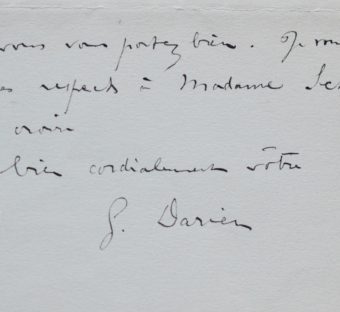 vous vous portez bien. Je vou
es respects à Madame Sch
croire
bien cordialement vôtre
G. Darien